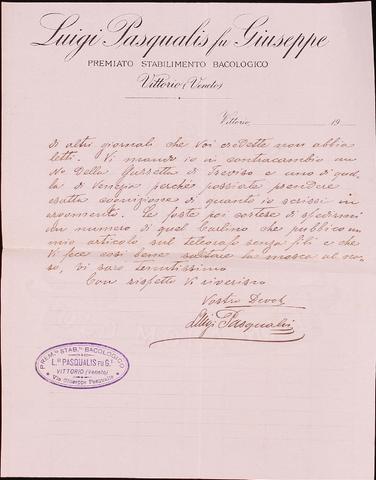 Luigi Pasqualis fu Giuseppe
PREMIATO STABILIMENTO BACOLOGICO
Vittorio (Veneto)
Vittorio, 19
di altri giornali che Voi credette non abbia
letti. Vi mando io in contraccambio un
No Della Gazzetta di Treviso e uno di quel
la di Venezia perchè possiate prendere
esatta cognizione di quanto io scissi in
argomento. Se foste poi cortese di spedirmi
un numero di quel Carlino che pubblico un
mio articolo sul telegrafo senza fili e che
vi fece così bene saltare la mosca al na-
so, vi saro tenutissimo
Con rispetto Vi riverisco
Vostro Devot
Luigi Pasqualis
PREM. STAB. BACOLOGICO
L. PASQUALIS FU G.
VITTORIO (Veneto)
Via Giuseppe Pasqualis